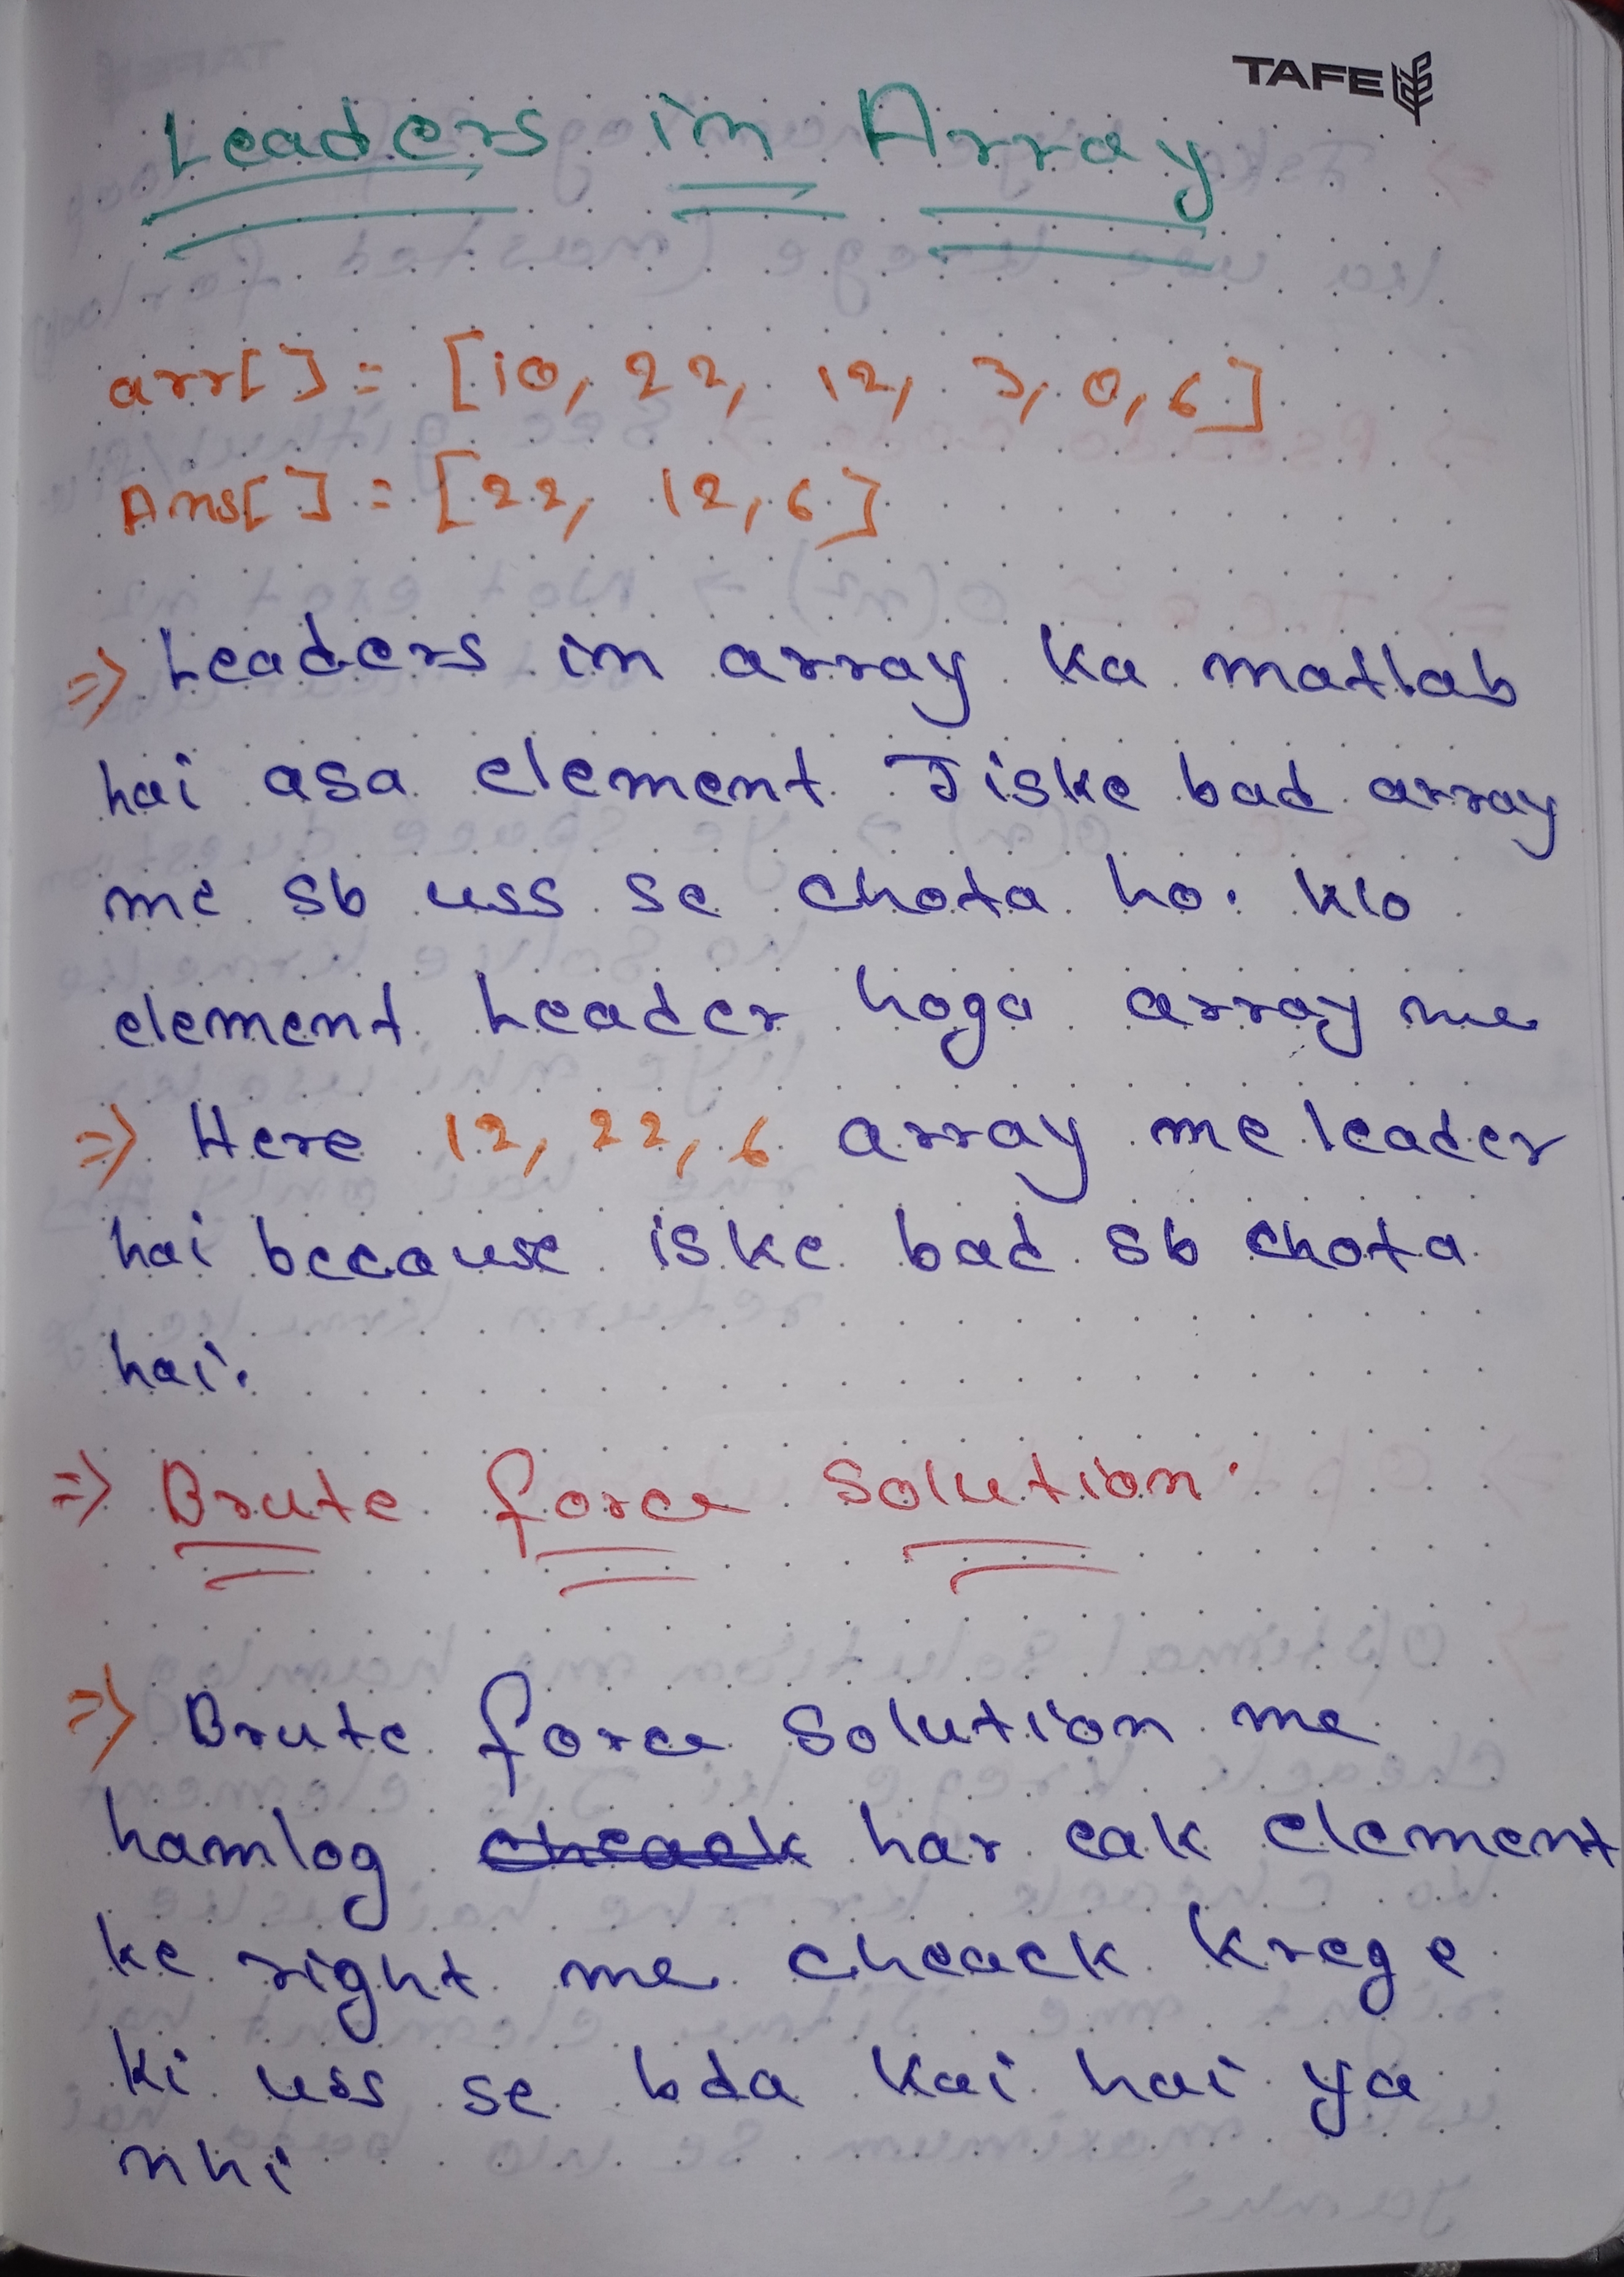 TAFE
Leaders in Array
arr[] = [10, 22, 12, 3, 0, 6]
Ans[] = [22, 12, 6]
=> Leaders in array ka matlab
hai asa element Jiske bad array
me sb uss se chota ho. Wo
element Leader hoga array me
=> Here 12, 22, 6 array me leader
hai because iske bad sb chota
hai.
=> Brute force Solution.
=> Brute force Solution me
hamlog cheack har eak element
ke right me cheack krege
ki uss se bda kai hai ya
nhi